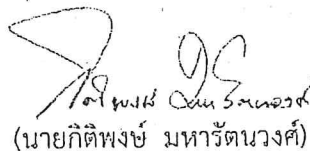 (นายกิติพงษ์ มหารัตนวงศ์)